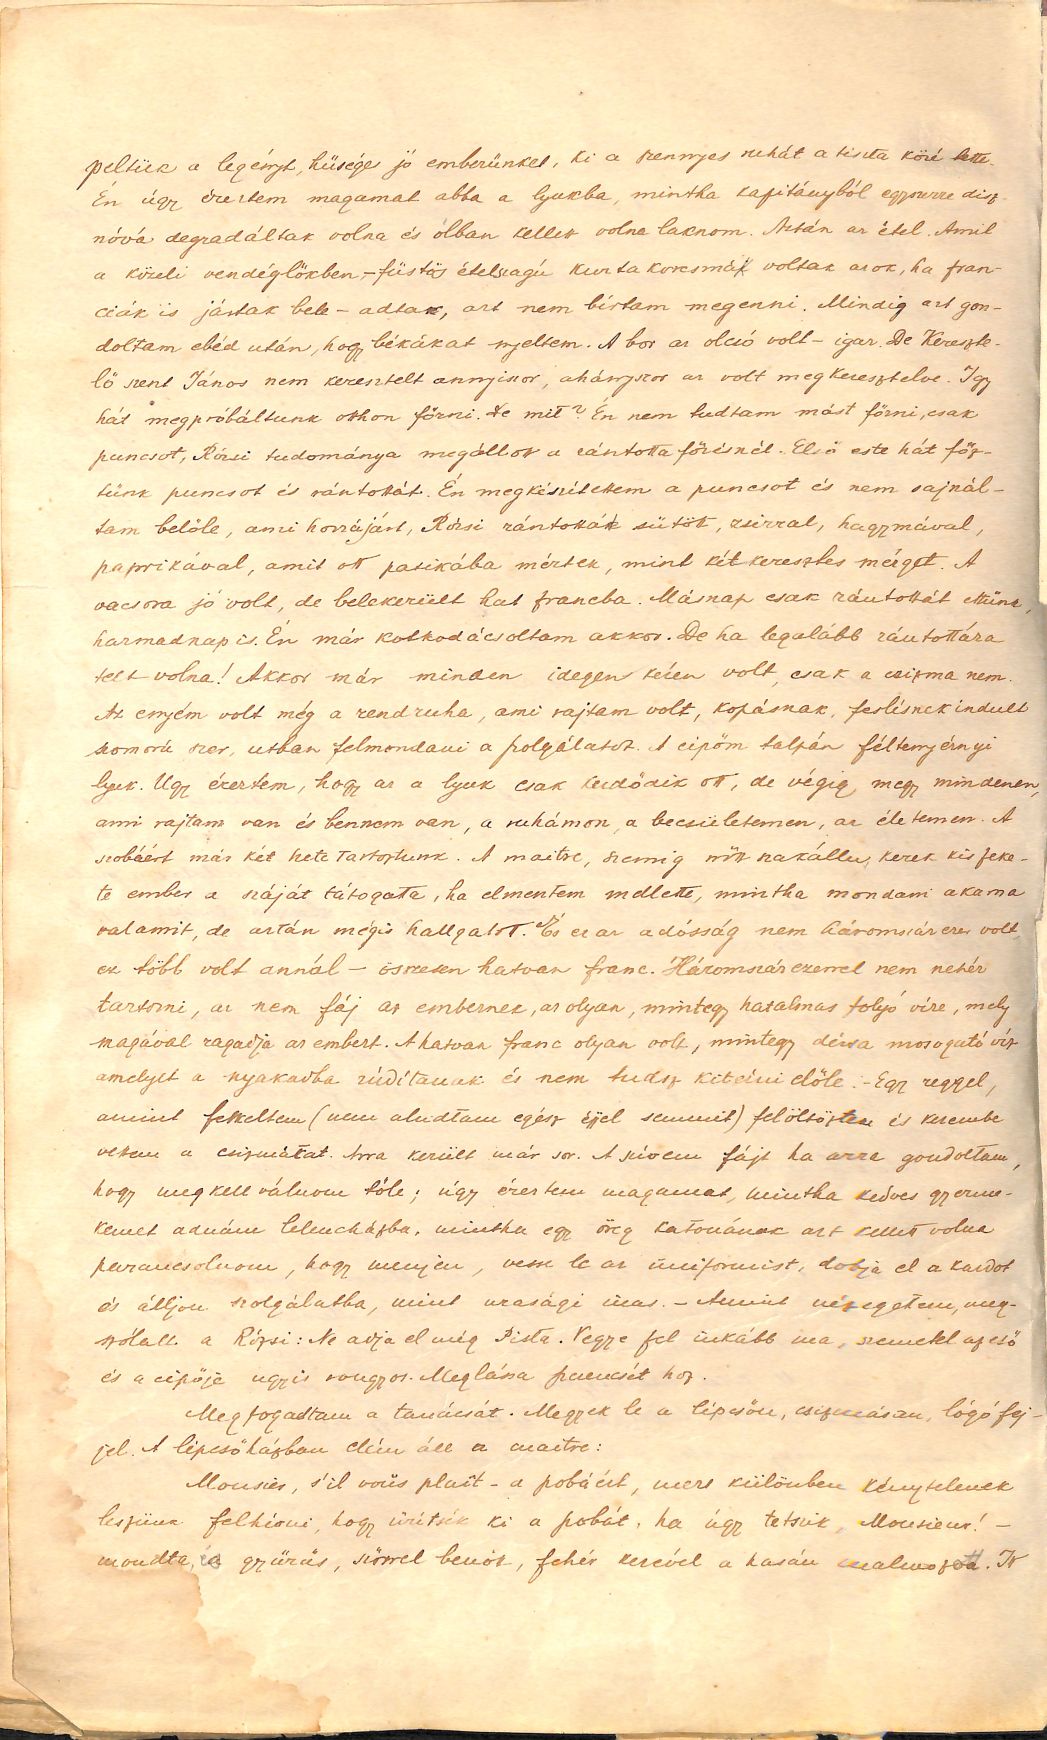 peltük a legényt, hűséges jó emberünket, ki a szennyes ruhát a tiszta közé tette.
Én úgy éreztem magamat abba a lyukba, mintha kapitányból egyszerre disz-
nóvá degradáltak volna és ólban kellett volna laknom. Aztán az étel. Amit
a közeli vendéglőkben - füstös ételszagú kurta korcsmák voltak azok, ha fran-
ciák is jártak bele - adtak, azt nem bírtam megenni. Mindig azt gon-
doltam ebéd után, hogy békákat nyeltem. A bor az olcsó volt - igaz. De Keresz­te-
lő szent János nem keresztelt annyiszor, ahányszor az volt megkeresztelve. Igy
hát megpróbáltunk otthon főzni. De mit? Én nem tudtam mást főzni, csak
puncsot, Rózsi tudománya megállott a rántotta főzésnél. Első este hát főz-
tünk puncsot és rántottát. Én megkészítettem a puncsot és nem sajnál-
tam belőle, ami hozzájárt, Rózsi rántottát sütött, zsirral, hagymával,
paprikával, amit ott patikába mértek, mint két keresztes mérget. A
vacsora jó volt, de belekerült hat francba. Másnap csak rántottát ettünk,
harmadnap is. Én már kotkodácsoltam akkor. De ha legalább rántottára
telt volna! Akkor már minden idegen kézen volt, csak a csizma nem.
Az enyém volt még a rendruha, ami rajtam volt, kopásnak, feslésnek indult
szomorú szer, utban felmondani a szolgálatot. A cipőm talpán féltenyérnyi
lyuk. Ugy éreztem, hogy az a lyuk csak kezdődik ott, de végig megy mindenen,
ami rajtam van és bennem van, a ruhámon, a becsületemen, az életemen. A
szobáért már két hete tartoztunk. A maitre, szemig nőtt szakállu, kerek kis feke-
te ember a száját tátogatta, ha elmentem mellette, mintha mondani akarna
valamit, de aztán mégis hallgatott. És ez az adósság nem háromszázezer volt,
ez több volt annál - összesen hatvan franc. Háromszázezerrel nem nehéz
tartozni, az nem fáj az embernek, az olyan, mint egy hatalmas folyó vize, mely
magával ragadja az embert. A hatvan franc olyan volt, mint egy dézsa mosogató víz
amelyet a nyakadba zúdítanak és nem tudsz kitérni előle. - Egy reggel,
amint felkeltem (nem aludtam egész éjjel semmit) felöltöztem és kezembe
vettem a csizmátat. Arra került már sor. A szívem fájt ha arra gondoltam,
hogy meg kell válnom tőle; úgy éreztem magamat, mintha kedves gyerme-
kemet adnám lelencházba, mintha egy öreg katonának azt kellett volna
parancsolnom, hogy menjen, vesse le az uniformist, dobja el a kardot
és álljon szolgálatba, mint urasági inas. - Amint nézegetem, meg-
szólalt a Rózsi: Ne adja el még Pista. Vegye fel inkább ma, szemetel az eső
és a cipője ugyis rongyos. Meglássa szerencsét hoz.
Megfogadtam a tanácsát. Megyek le a lépcsőn, csizmásan, lógó fej-
jel. A lépcsőházban elém áll a maitre:
Monsier, s'il vous plaît - a szobáért, mert különben kénytelenek
leszünk felhívni, hogy ürítsék ki a szobát, ha úgy tetszik, Monsieur! -
mondta, és gyürüs, szőrrel benőtt, fehér kezével a hasán malmozott. Itt